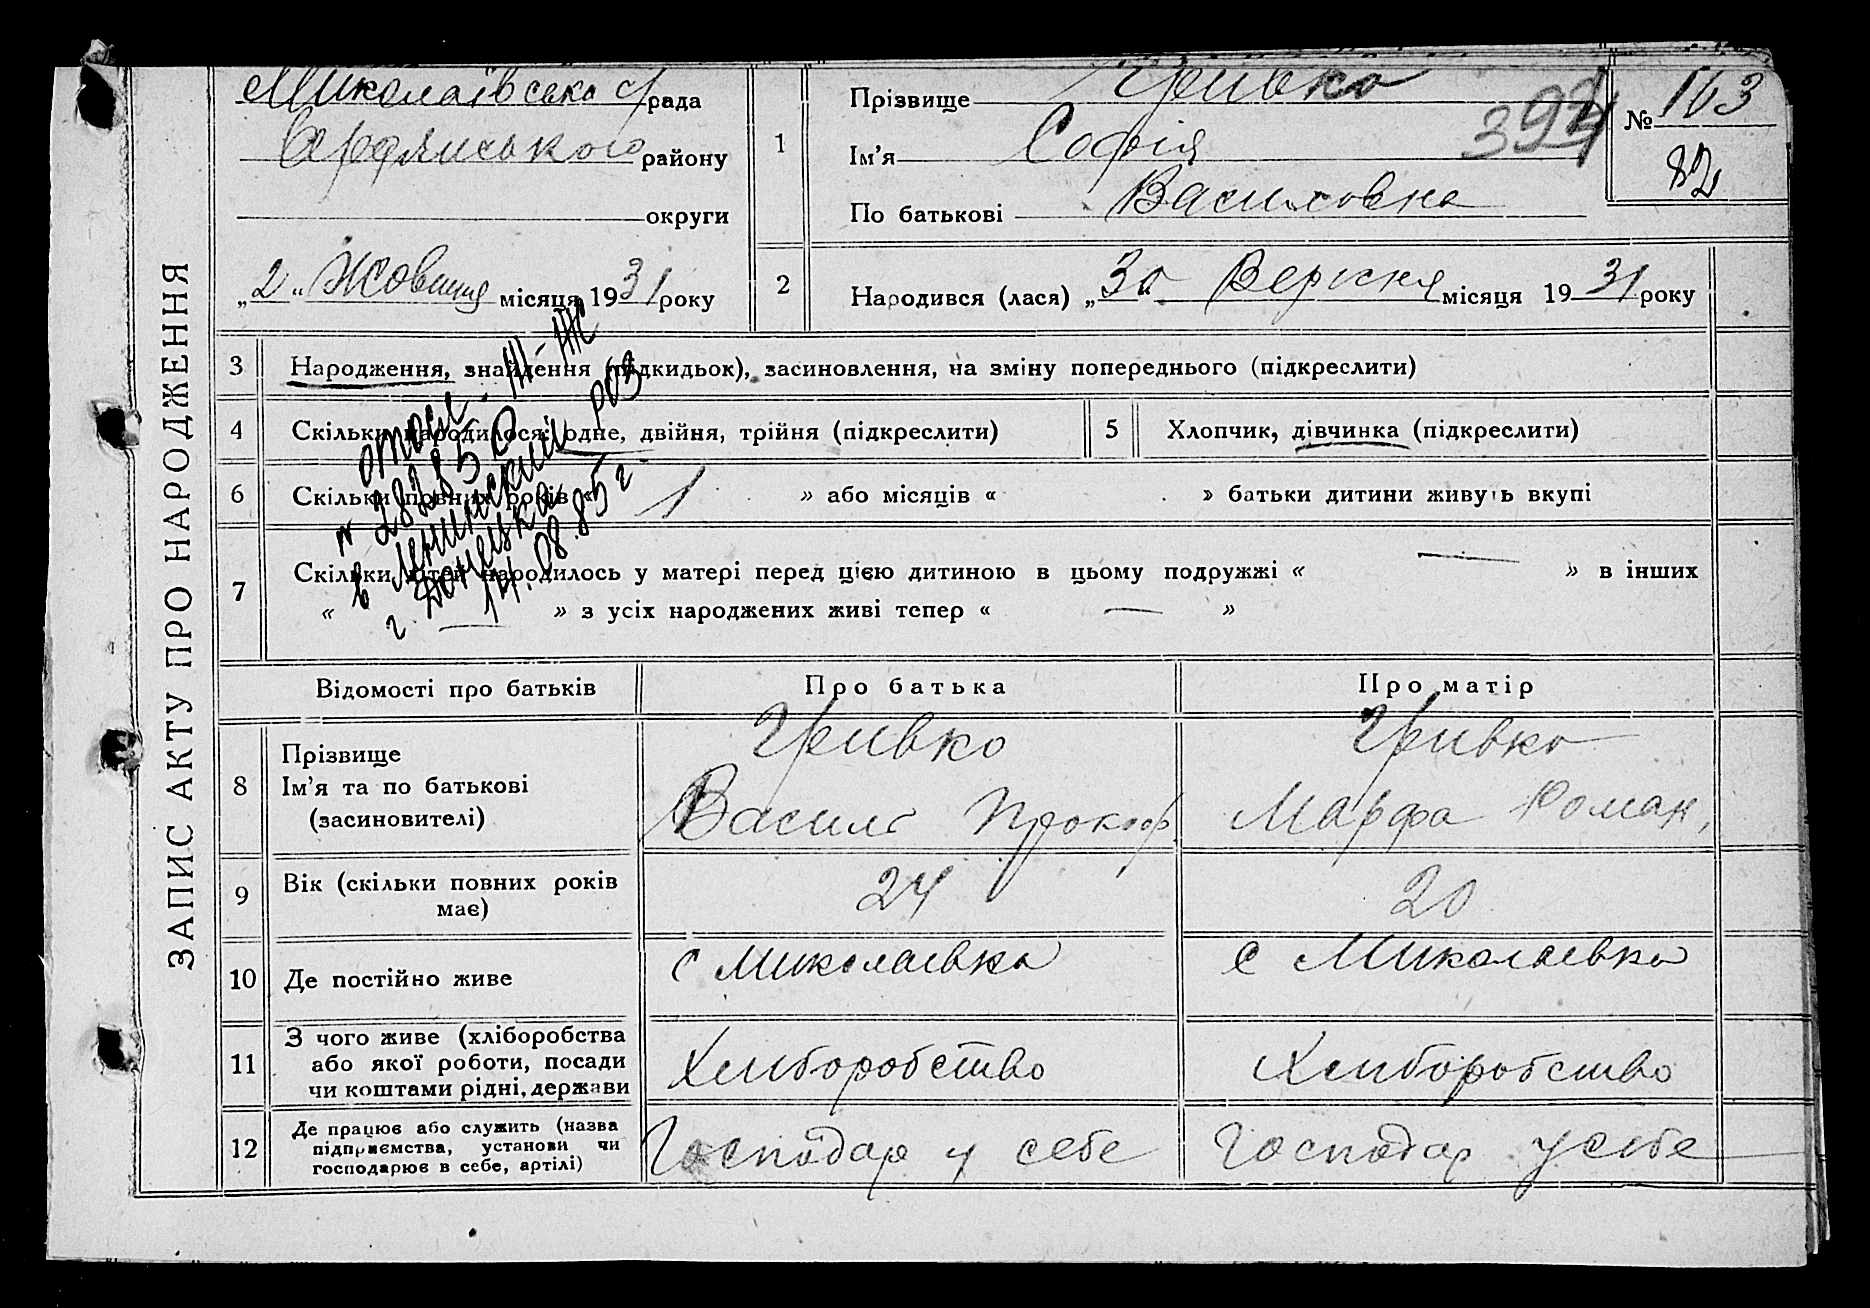 ЗАПИС АКТУ ПРО НАРОДЖЕННЯ
Миколаївська с/рада
району
округи
„2“ Жовтня місяця 1931 року
1
Прізвище Гривко
Ім'я Софія
По батькові Василовна
394
№ 163
82
2
Народився (лася) „30 Вересня місяця 1931 року
3 Народження, знайдення (підкидьок), засиновлення, на зміну попереднього (підкреслити)
4 Скільки народилося: одне, двійня, трійня (підкреслити)
5 Хлопчик, дівчинка (підкреслити)
6 Скільки повних років « 1 » або місяців « » батьки дитини живуть вкупі
7 Скільки дітей народилось у матері перед цією дитиною в цьому подружжі « — » в інших
« — » з усіх народжених живі тепер « — »
III-ЖС
№ 282850
в Ленинский РОЗ
г. Донецка
14.08.85 г.
Відомості про батьків
Про батька
Про матір
8 Прізвище
Ім'я та по батькові
(засиновителі)
Гривко
Василь Прокоф
Гривко
Марфа Роман,
9 Вік (скільки повних років
має)
24
20
10 Де постійно живе
с Миколаевка
с Миколаевка
11 З чого живе (хліборобства
або якої роботи, посади
чи коштами рідні, держави
Хлиборобство
Хлиборобство
12 Де працює або служить (назва
підприємства, установи чи
господарює в себе, артілі)
Господар у себе
Господар у себе